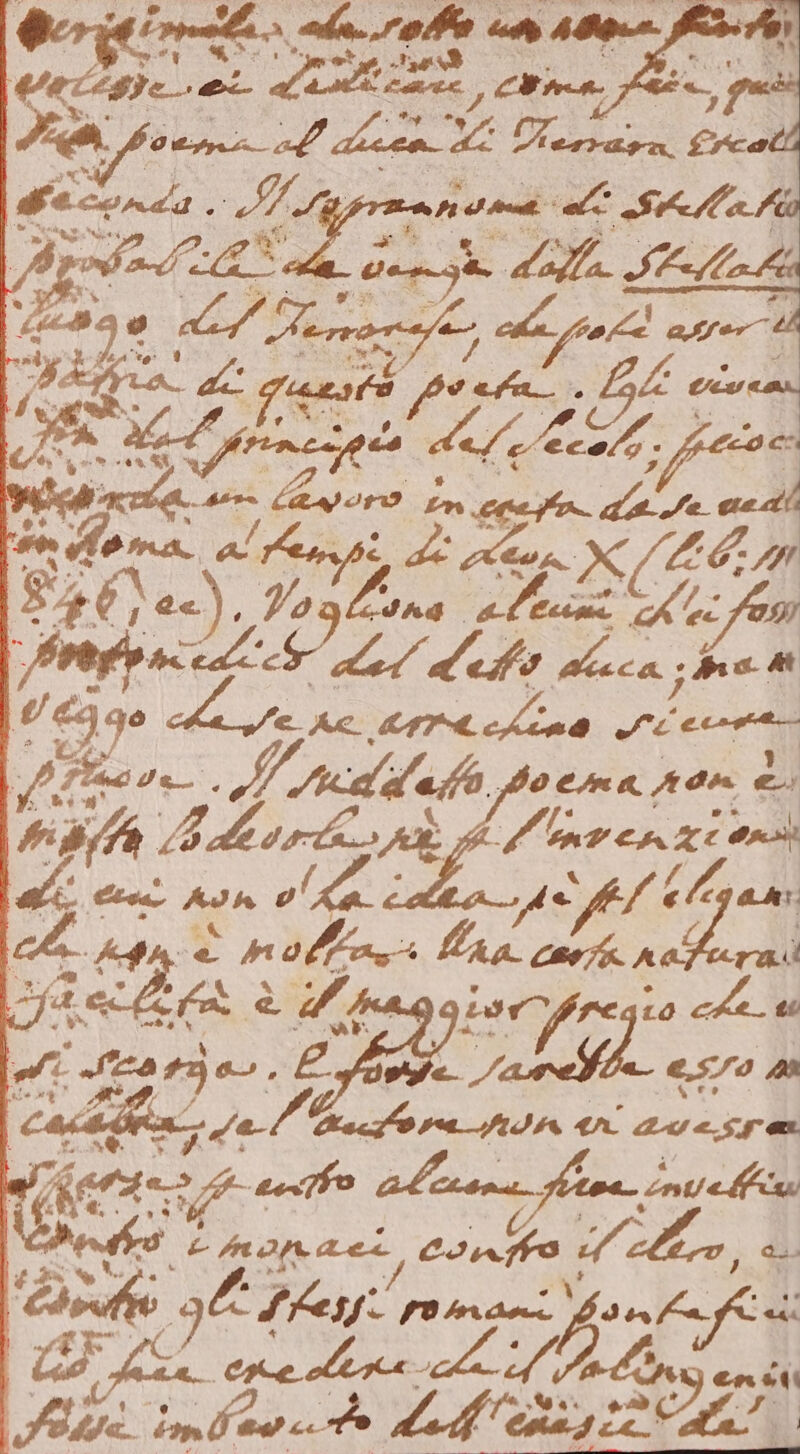 verisimile che sotto un nome finto
volesse ei dedicare, come fece, que
suo poema al duca di Ferrara Ercol
secondo. Il soprannome di Stellato
probabile che venga dalla Stellata
luogo del Ferrarese, che potè esser
patria di questo poeta. Egli vivea
fin dal principio del Secolo; 
ricorda un lavoro in creta da se ved
in Roma a' tempi di Leon X (lib:
846, ec). Vogliono alcuni ch'ei foss
protomedico del detto duca; ma n
veggo che se ne arrechino sicure
pruove. Il suddetto poema non è
molto lodevole nè p l'invenzione
di cui non v'ha idea, nè p l'elegan
che non è molta. Una certa natura
facilità è il maggior pregio che
si scorga. E forse sarebbe esso
celebre, se l'autore non vi avesse
sparse p entro alcune fiere invettive
contro i monaci, contro il clero, e
contro gli stessi romani pontefici
Ciò fece credere che il Palingenio
fosse imbevuto dell'eresie de'